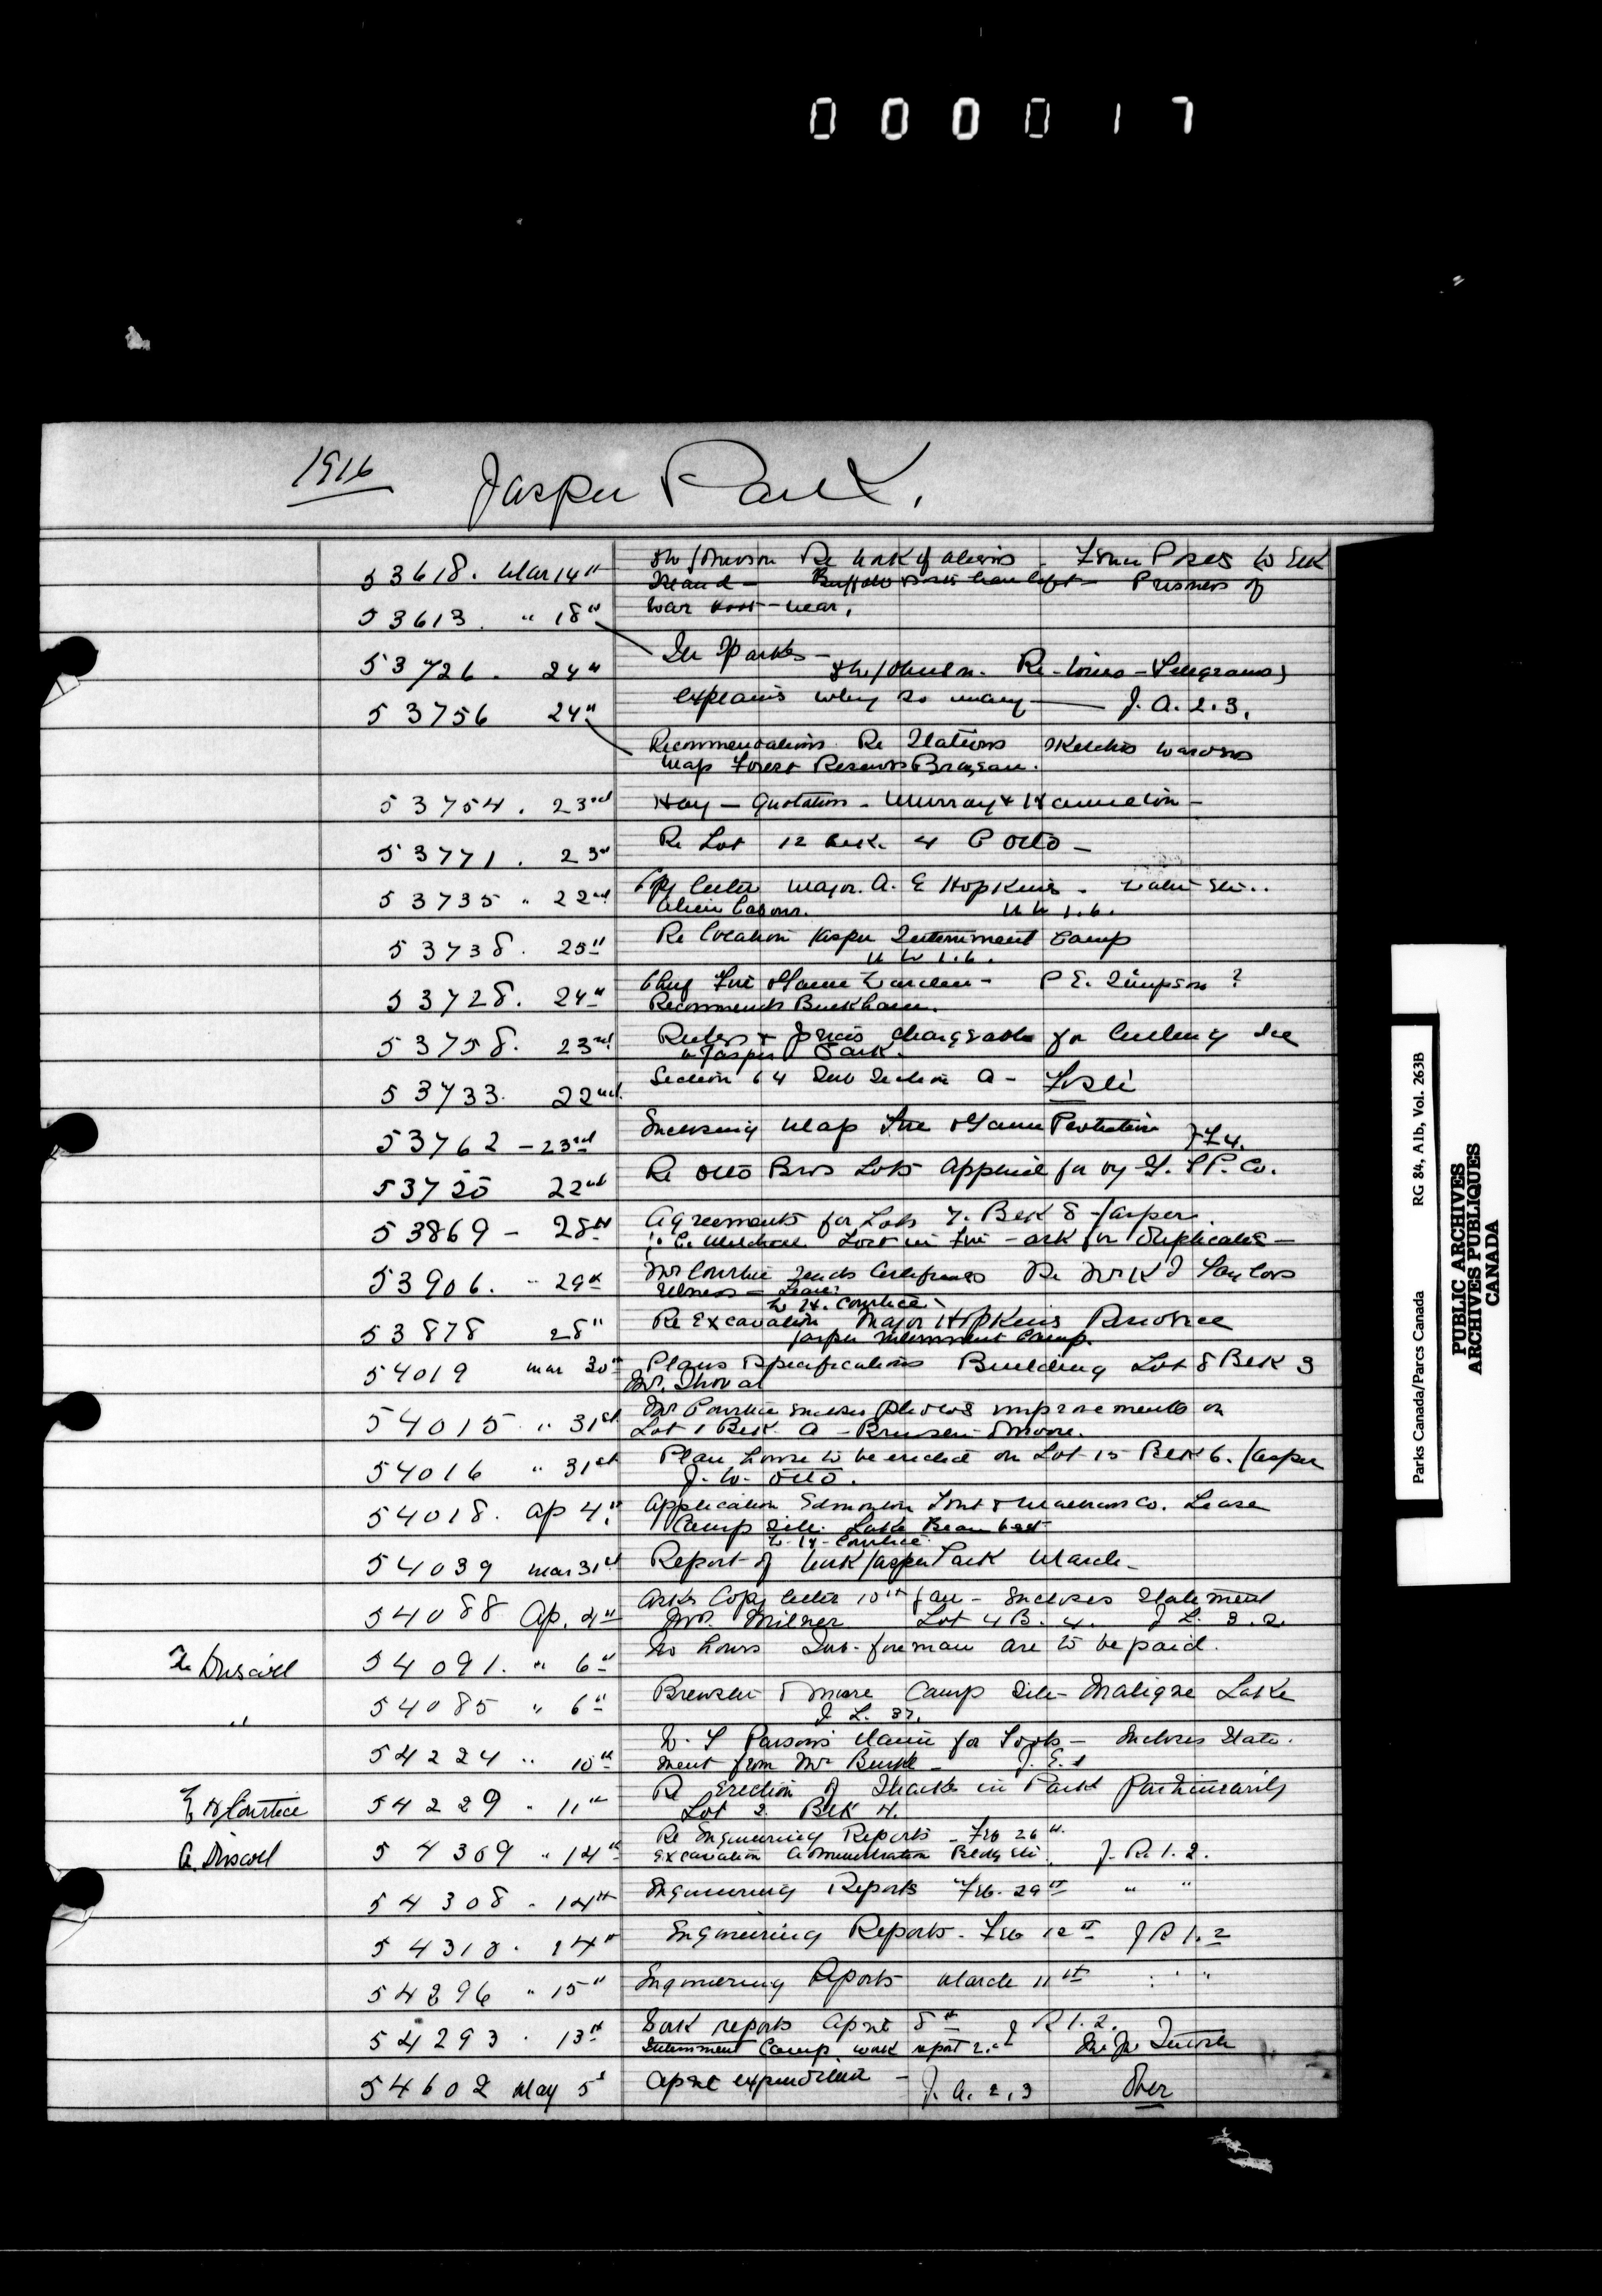 000017
1916 Jasper Park.
53618. Mar 14th Re work of aliens
Island - Buffalo have left - Prisoners of
war near.
53613. " 18th
53726. 24th Re Wires - Telegrams
explains why so many - J. A. 2. 3.
53756 24th
Recommendations Re Stations Sketches Wardens
Map Forest Reserves Brazeau.
53754. 23rd Hay - Quotations - Murray & Hamelin -
53771. 23rd Re Lot 12 Blk. 4 Otto -
53735 " 22nd Copy letter Major A. E Hopkins -
Alien Labour. U W 1.6.
53738. 25th Re location Jasper Internment Camp
U W 1.6.
53728. 24th Chief Fire & Game Warden - P E. Simpson ?
Recommends
53758. 23rd Rules & prices chargeable for cutting Ice
in Jasper Park.
53733. 22nd. Section 64 Sub Section A -
53762 - 23rd Enclosing Map Fire & Game Protection J F 4.
53725 22nd Re Otto Bros Lots applied for by G. T P. Co.
53869 - 28th Agreements for Lots 7. Blk 8 - Jasper.
Lost in fire - ask for Duplicates -
53906. " 29th Mr Courtice sends Certificates Re Mr Taylors
Illness - Leave
W. H. Courtice
53878 28th Re Excavation Major Hopkins
Jasper Internment Camp.
54019 Mar 30th Plans & Specifications Building Lot 8 Blk 3
Mr.
54015 " 31st Mr Courtice encloses photos improvements on
Lot 1 Blk. A - Brewster & Moore.
54016 " 31st Plan house to be erected on Lot 15 Blk 6. Jasper
J. W. Otto.
54018. Ap 4th Application Edmonton Tent & Mattress Co. Lease
Camp Site. Lake Beauvert
W. H. Courtice
54039 Mar 31st Report of Work Jasper Park March -
54088 Ap. 4th Asks Copy letter 10th Jan - Encloses Statement
Mr. Milner Lot 4 B. 4. J L. 3. 2.
Driscoll 54091. " 6th No hours Sub-foreman are to be paid.
" 54085 " 6th Brewster & Moore Camp Site - Maligne Lake
J L. 37.
54224 " 10th Parsons claim for Tools - Encloses State-
ment from Mr Burke - J. E. 1
W H Courtice 54229 " 11th Re Erection of Shacks in Park Particularly
Lot 2 Blk 4.
A. Driscoll 54309 " 14th Re Engineering Reports - Feb 26th.
Excavation Administration Bldg etc. J. R. 1. 2.
54308 " 14th Engineering Reports Feb. 29th " "
54310 " 14th Engineering Reports - Feb 12th J R 1. 2
54296 " 15th Engineering Reports March 11th " "
54293 " 13th Work reports April 8th J R 1. 2.
Internment Camp work report
54602 May 5th April expenditure - J. A. 2, 3
Parks Canada/Parcs Canada RG 84, A1b, Vol. 263B
PUBLIC ARCHIVES
ARCHIVES PUBLIQUES
CANADA